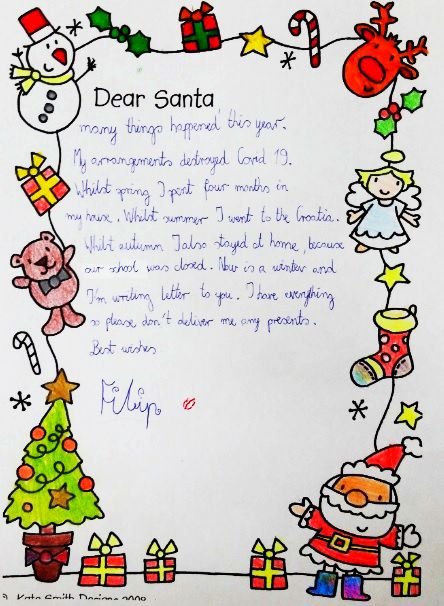 Dear Santa
many things happened this year.
My arrangements destroyed Covid 19.
Whilst spring I spent four months in
my house. Whilst summer I went to the Croatia.
Whilst autumn I also stayed at home, because
our school was closed. Now is a winter and
I'm writing letter to you. I have everything
so please don't deliver me any presents.
Best wishes
Filip
Kate Smith Designs 2008